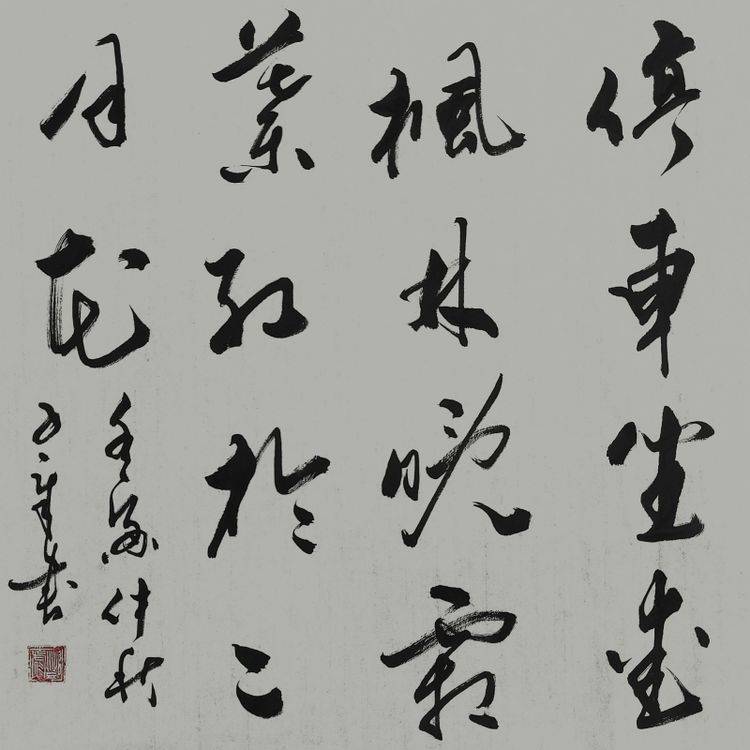 停車坐愛
楓林晚霜
葉紅於二
月花
仲秋
書